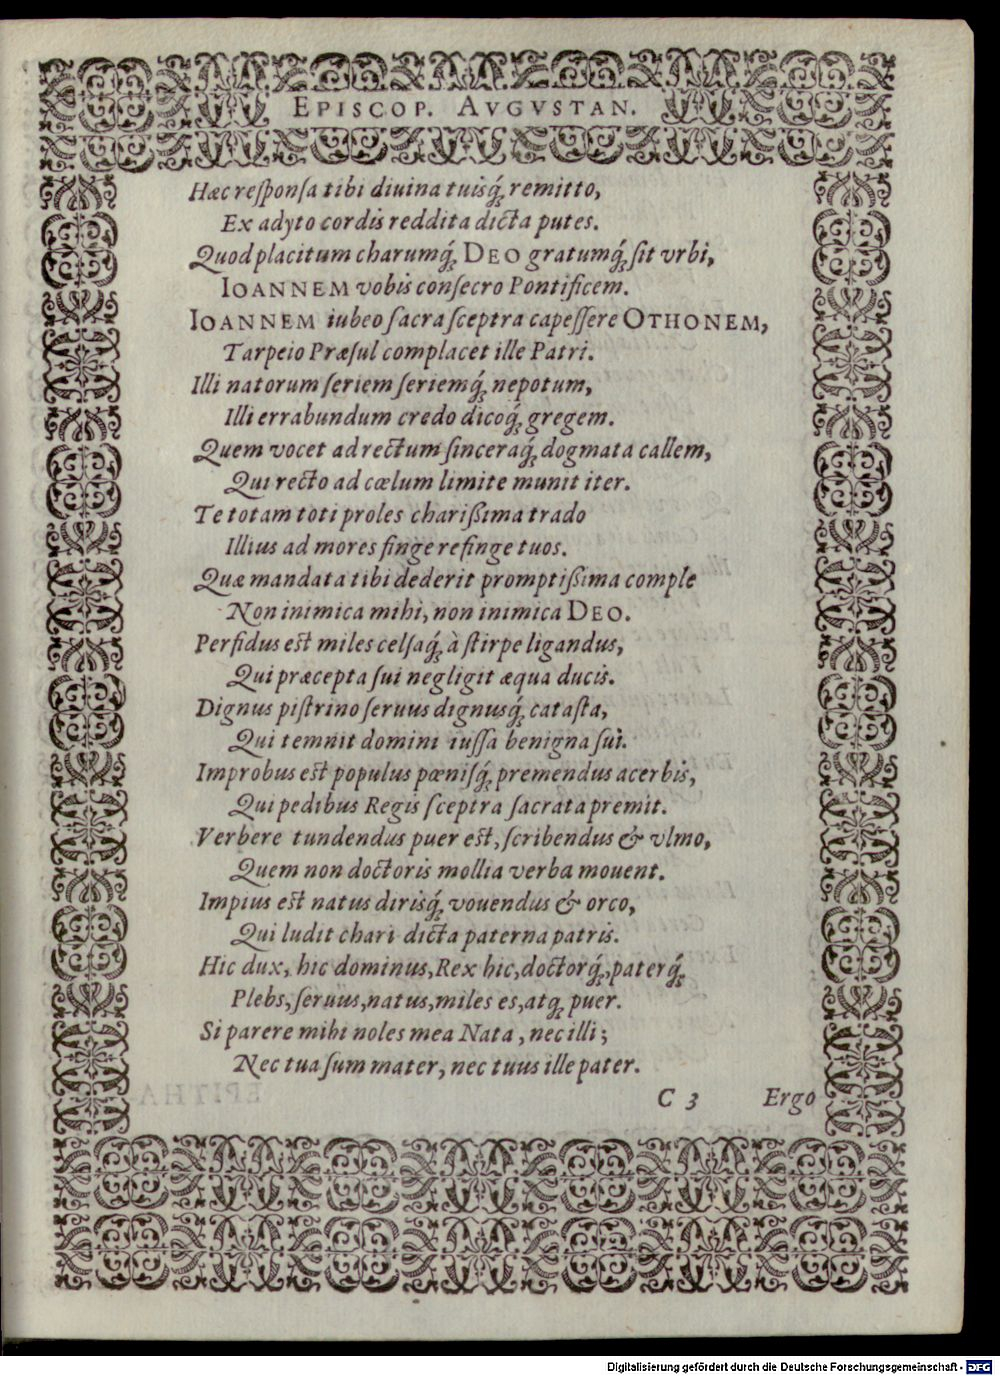 EPISCOP. AVGVSTAN.
Hæc reſponſa tibi diuina tuisq́; remitto,
Ex adyto cordis reddita dicta putes.
Quod placitum charumq́; DEO gratumq́; ſit vrbi,
IOANNEM vobis conſecro Pontificem.
IOANNEM iubeo ſacra ſceptra capeſſere OTHONEM,
Tarpeio Præſul complacet ille Patri.
Illi natorum ſeriem ſeriemq́; nepotum,
Illi errabundum credo dicoq́; gregem.
Quem vocet ad rectum ſinceraq́; dogmata callem,
Qui recto ad cœlum limite munit iter.
Te totam toti proles charißima trado
Illius ad mores finge refinge tuos.
Quæ mandata tibi dederit promptißima comple
Non inimica mihi, non inimica DEO.
Perfidus est miles celſaq́; à ſtirpe ligandus,
Qui præcepta ſui negligit æqua ducis.
Dignus piſtrino ſeruus dignusq́; cataſta,
Qui temnit domini iuſſa benigna ſui.
Improbus est populus pœniſq́; premendus acerbis,
Qui pedibus Regis ſceptra ſacrata premit.
Verbere tundendus puer est, ſcribendus & vlmo,
Quem non doctoris mollia verba mouent.
Impius est natus dirisq́; vouendus & orco,
Qui ludit chari dicta paterna patris.
Hic dux, hic dominus, Rex hic, doctorq́;, paterq́;
Plebs, ſeruus, natus, miles es, atq; puer.
Si parere mihi noles mea Nata, nec illi;
Nec tua ſum mater, nec tuus ille pater.
C 3 Ergo
Digitalisierung gefördert durch die Deutsche Forschungsgemeinschaft - DFG